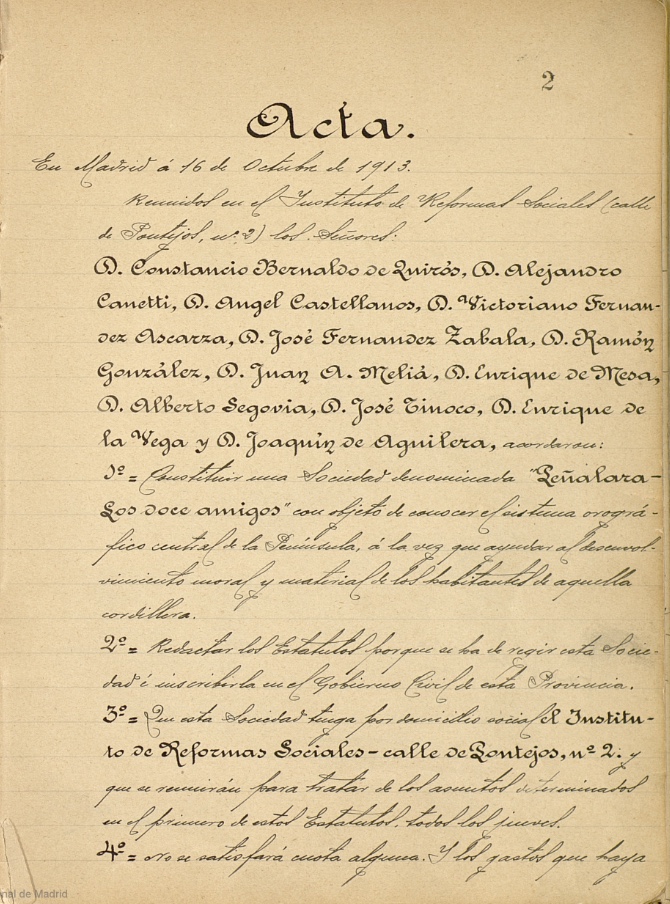 2
Acta.
En Madrid á 16 de Octubre de 1913.
Reunidos en el Instituto de Reformas Sociales (calle
de Pontejos, nº 2) los Señores:
D. Constancio Bernaldo de Quirós, D. Alejandro
Canetti, D. Angel Castellanos, D. Victoriano Fernan-
dez Ascarza, D. José Fernandez Zabala, D. Ramón
González, D. Juan A. Meliá, D. Enrique de Mesa,
D. Alberto Segovia, D. José Tinoco, D. Enrique de
la Vega y D. Joaquín de Aguilera, acordaron:
1º = Constituir una Sociedad denominada "Peñalara-
Los doce amigos" con objeto de conocer el sistema orográ-
fico central de la Península, á la vez que ayudar al desenvol-
vimiento moral y material de los habitantes de aquella
cordillera.
2º = Redactar los Estatutos porque se ha de regir esta Socie-
dad é inscribirla en el Gobierno Civil de esta Provincia.
3º = Que esta Sociedad tenga por domicilio social el Institu-
to de Reformas Sociales - calle de Pontejos, nº 2. y
que se reunirán para tratar de los asuntos determinados
en el primero de estos Estatutos, todos los jueves.
4º = No se satisfará cuota alguna. Y los gastos que haya
nal de Madrid